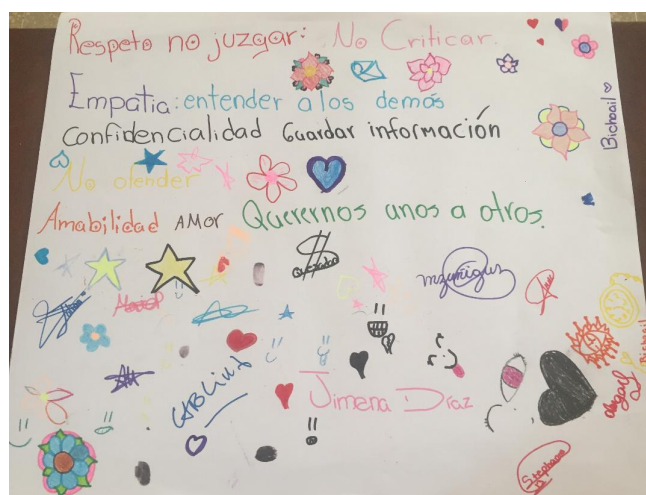 Respeto no juzgar: No Criticar.
Empatia: entender a los demás
Confidencialidad Guardar información
No ofender
Amabilidad AMOR Querernos unos a otros.
Jimena Diaz
Abigail
Stephano